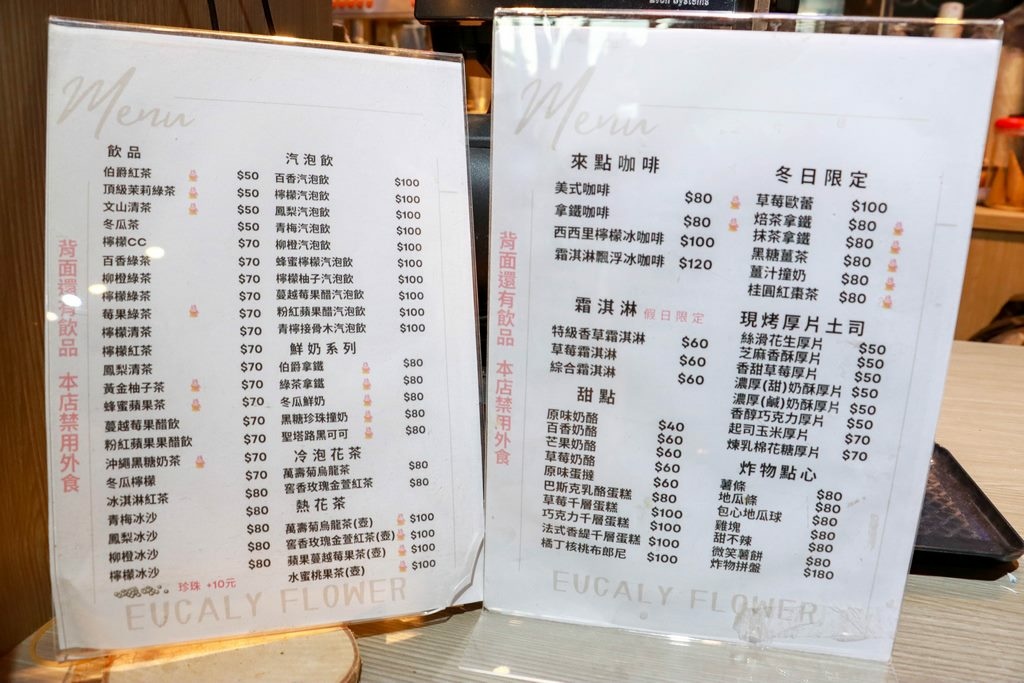 Menu
飲品
伯爵紅茶 $50
頂級茉莉綠茶 $50
文山清茶 $50
冬瓜茶 $50
檸檬CC $70
百香綠茶 $70
柳橙綠茶 $70
檸檬綠茶 $70
莓果綠茶 $70
檸檬清茶 $70
檸檬紅茶 $70
鳳梨清茶 $70
黃金柚子茶 $70
蜂蜜蘋果茶 $70
蔓越莓果醋飲 $70
粉紅蘋果果醋飲 $70
沖繩黑糖奶茶 $70
冬瓜檸檬 $70
冰淇淋紅茶 $80
青梅冰沙 $80
鳳梨冰沙 $80
柳橙冰沙 $80
檸檬冰沙 $80
珍珠 +10元
汽泡飲
百香汽泡飲 $100
檸檬汽泡飲 $100
鳳梨汽泡飲 $100
青梅汽泡飲 $100
柳橙汽泡飲 $100
蜂蜜檸檬汽泡飲 $100
檸檬柚子汽泡飲 $100
蔓越莓果醋汽泡飲 $100
粉紅蘋果醋汽泡飲 $100
青檸接骨木汽泡飲 $100
鮮奶系列
伯爵拿鐵 $80
綠茶拿鐵 $80
冬瓜鮮奶 $80
黑糖珍珠撞奶 $80
聖塔路黑可可 $80
冷泡花茶
萬壽菊烏龍茶 $80
窨香玫瑰金萱紅茶 $80
熱花茶
萬壽菊烏龍茶(壺) $100
窨香玫瑰金萱紅茶(壺) $100
蘋果蔓越莓果茶(壺) $100
水蜜桃果茶(壺) $100
背面還有飲品 本店禁用外食
EUCALY FLOWER
Menu
來點咖啡
美式咖啡 $80
拿鐵咖啡 $80
西西里檸檬冰咖啡 $100
霜淇淋飄浮冰咖啡 $120
霜淇淋 假日限定
特級香草霜淇淋 $60
草莓霜淇淋 $60
綜合霜淇淋 $60
甜點
原味奶酪 $40
百香奶酪 $60
芒果奶酪 $60
草莓奶酪 $60
原味蛋撻 $60
巴斯克乳酪蛋糕 $80
草莓千層蛋糕 $100
巧克力千層蛋糕 $100
法式香緹千層蛋糕 $100
橘丁核桃布郎尼 $100
冬日限定
草莓歐蕾 $100
焙茶拿鐵 $80
抹茶拿鐵 $80
黑糖薑茶 $80
薑汁撞奶 $80
桂圓紅棗茶 $80
現烤厚片土司
絲滑花生厚片 $50
芝麻香酥厚片 $50
香甜草莓厚片 $50
濃厚(甜)奶酥厚片 $50
濃厚(鹹)奶酥厚片 $50
香醇巧克力厚片 $50
起司玉米厚片 $70
煉乳棉花糖厚片 $70
炸物點心
薯條 $80
地瓜條 $80
包心地瓜球 $80
雞塊 $80
甜不辣 $80
微笑薯餅 $80
炸物拼盤 $180
背面還有飲品 本店禁用外食
EUCALY FLOWER